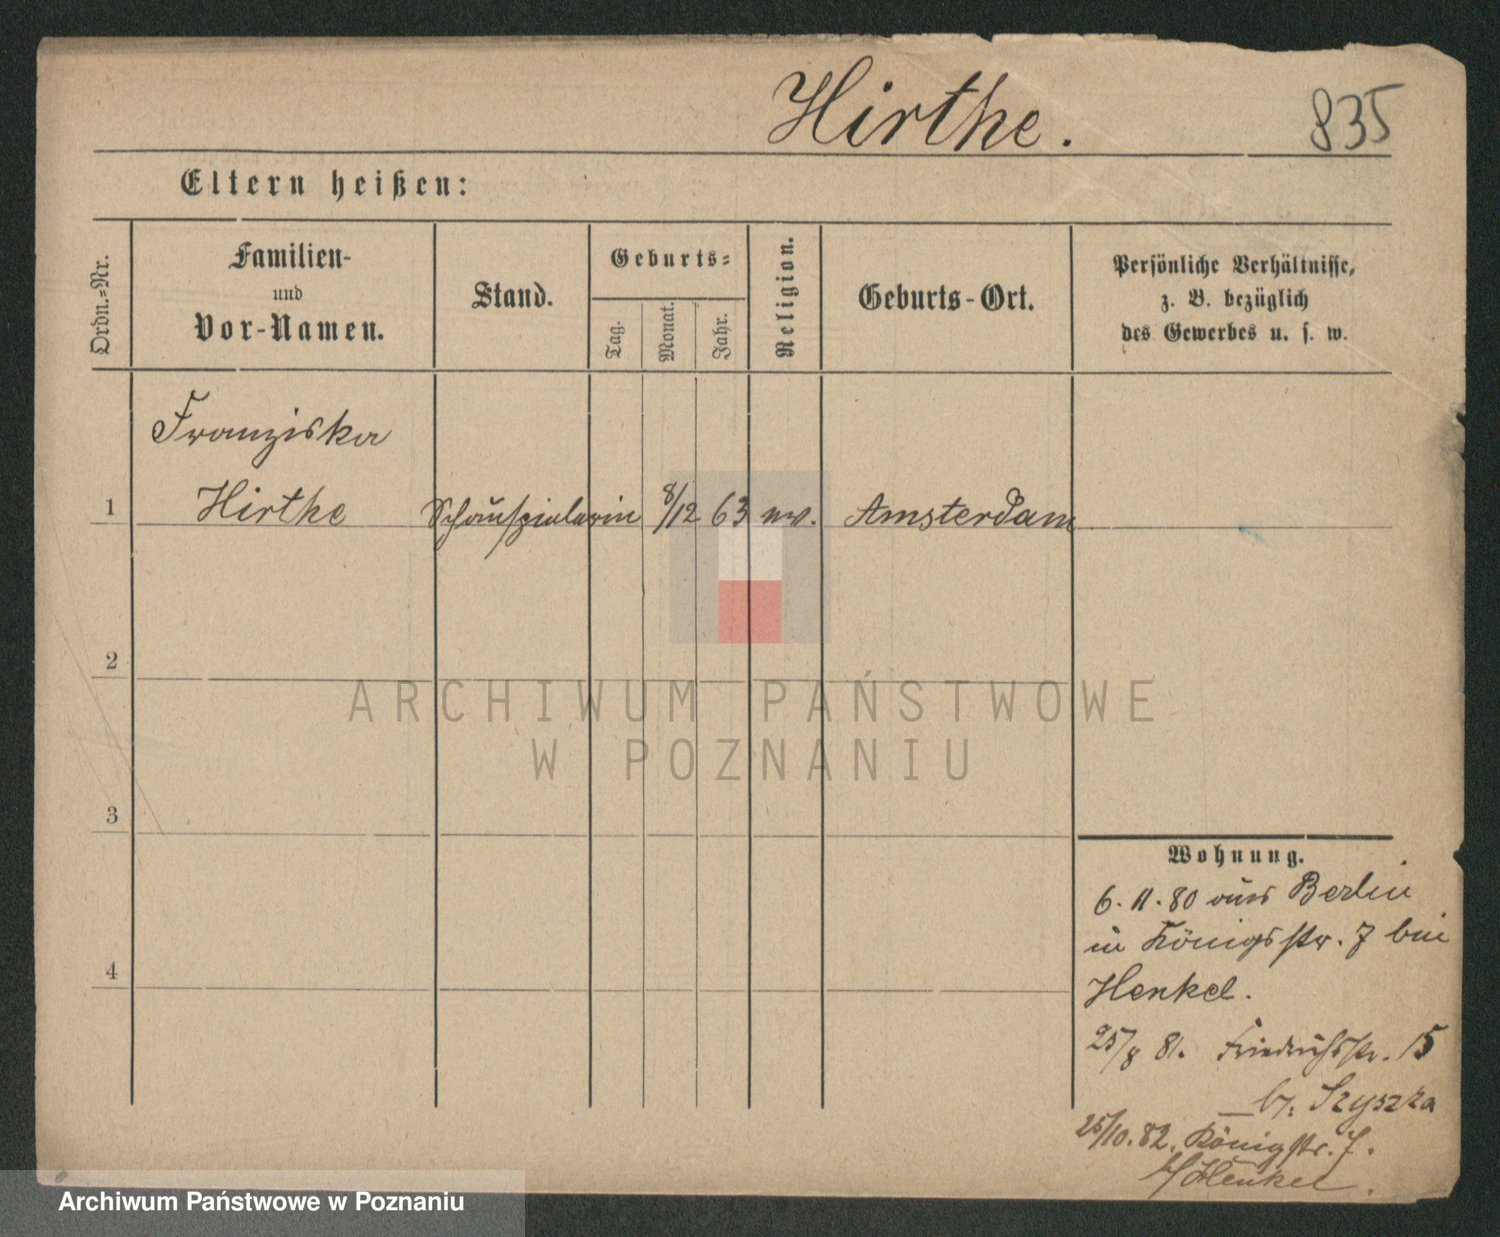 Hirthe.
835
Eltern heißen:
Ordn.-Nr.
Familien-
und
Vor-Namen.
Stand.
Geburts-
Tag.
Monat.
Jahr.
Religion.
Geburts-Ort.
Persönliche Verhältnisse,
z. B. bezüglich
des Gewerbes u. s. w.
Franziska
1 Hirthe Schauspielerin 8/12 63 ev. Amsterdam
2
3
4
Wohnung.
6. 11. 80 aus Berlin
in Königsstr. 7 bei
Henkel.
25/8 81. Friedrichsstr. 15
b. Szyszka
25/10. 82. Königstr. 7.
b/ Henkel.
ARCHIWUM PAŃSTWOWE
W POZNANIU
Archiwum Państwowe w Poznaniu